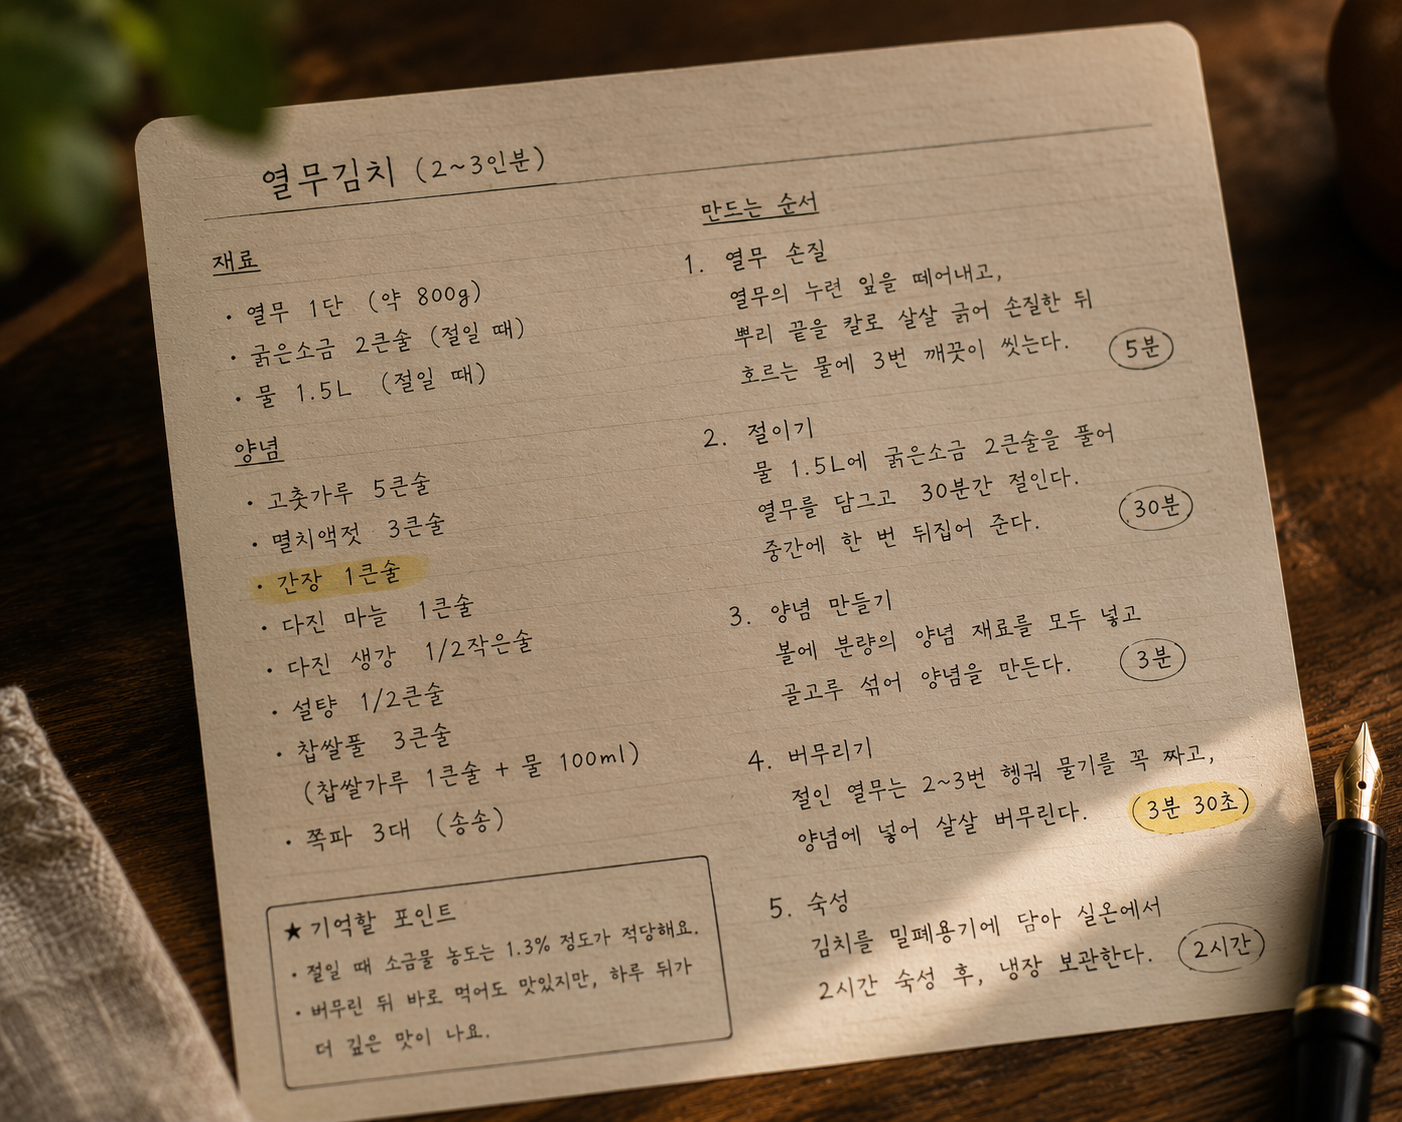 열무김치 (2~3인분)
재료
· 열무 1단 (약 800g)
· 굵은소금 2큰술 (절일 때)
· 물 1.5L (절일 때)
양념
· 고춧가루 5큰술
· 멸치액젓 3큰술
· 간장 1큰술
· 다진 마늘 1큰술
· 다진 생강 1/2작은술
· 설탕 1/2큰술
· 찹쌀풀 3큰술
(찹쌀가루 1큰술 + 물 100ml)
· 쪽파 3대 (송송)
★ 기억할 포인트
· 절일 때 소금물 농도는 1.3% 정도가 적당해요.
· 버무린 뒤 바로 먹어도 맛있지만, 하루 뒤가
더 깊은 맛이 나요.
만드는 순서
1. 열무 손질
열무의 누런 잎을 떼어내고,
뿌리 끝을 칼로 살살 긁어 손질한 뒤
흐르는 물에 3번 깨끗이 씻는다.
5분
2. 절이기
물 1.5L에 굵은소금 2큰술을 풀어
열무를 담그고 30분간 절인다.
중간에 한 번 뒤집어 준다.
30분
3. 양념 만들기
볼에 분량의 양념 재료를 모두 넣고
골고루 섞어 양념을 만든다.
3분
4. 버무리기
절인 열무는 2~3번 헹궈 물기를 꼭 짜고,
양념에 넣어 살살 버무린다.
3분 30초
5. 숙성
김치를 밀폐용기에 담아 실온에서
2시간 숙성 후, 냉장 보관한다.
2시간